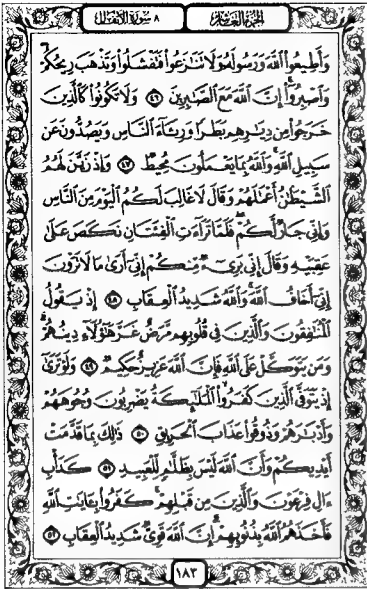 الجزء العاشر ٨ سورة الأنفال
وَأَطِيعُوا۟ ٱللَّهَ وَرَسُولَهُۥ وَلَا تَنَٰزَعُوا۟ فَتَفْشَلُوا۟ وَتَذْهَبَ رِيحُكُمْ
وَٱصْبِرُوٓا۟ إِنَّ ٱللَّهَ مَعَ ٱلصَّٰبِرِينَ ٤٦ وَلَا تَكُونُوا۟ كَٱلَّذِينَ
خَرَجُوا۟ مِن دِيَٰرِهِم بَطَرًا وَرِئَآءَ ٱلنَّاسِ وَيَصُدُّونَ عَن
سَبِيلِ ٱللَّهِ وَٱللَّهُ بِمَا يَعْمَلُونَ مُحِيطٌ ٤٧ وَإِذْ زَيَّنَ لَهُمُ
ٱلشَّيْطَٰنُ أَعْمَٰلَهُمْ وَقَالَ لَا غَالِبَ لَكُمُ ٱلْيَوْمَ مِنَ ٱلنَّاسِ
وَإِنِّى جَارٌ لَّكُمْ فَلَمَّا تَرَآءَتِ ٱلْفِئَتَانِ نَكَصَ عَلَىٰ
عَقِبَيْهِ وَقَالَ إِنِّى بَرِىٓءٌ مِّنكُمْ إِنِّىٓ أَرَىٰ مَا لَا تَرَوْنَ
إِنِّىٓ أَخَافُ ٱللَّهَ وَٱللَّهُ شَدِيدُ ٱلْعِقَابِ ٤٨ إِذْ يَقُولُ
ٱلْمُنَٰفِقُونَ وَٱلَّذِينَ فِى قُلُوبِهِم مَّرَضٌ غَرَّ هَٰٓؤُلَآءِ دِينُهُمْ
وَمَن يَتَوَكَّلْ عَلَى ٱللَّهِ فَإِنَّ ٱللَّهَ عَزِيزٌ حَكِيمٌ ٤٩ وَلَوْ تَرَىٰٓ
إِذْ يَتَوَفَّى ٱلَّذِينَ كَفَرُوا۟ ٱلْمَلَٰٓئِكَةُ يَضْرِبُونَ وُجُوهَهُمْ
وَأَدْبَٰرَهُمْ وَذُوقُوا۟ عَذَابَ ٱلْحَرِيقِ ٥٠ ذَٰلِكَ بِمَا قَدَّمَتْ
أَيْدِيكُمْ وَأَنَّ ٱللَّهَ لَيْسَ بِظَلَّٰمٍ لِّلْعَبِيدِ ٥١ كَدَأْبِ
ءَالِ فِرْعَوْنَ وَٱلَّذِينَ مِن قَبْلِهِمْ كَفَرُوا۟ بِـَٔايَٰتِ ٱللَّهِ
فَأَخَذَهُمُ ٱللَّهُ بِذُنُوبِهِمْ إِنَّ ٱللَّهَ قَوِىٌّ شَدِيدُ ٱلْعِقَابِ ٥٢
١٨٣